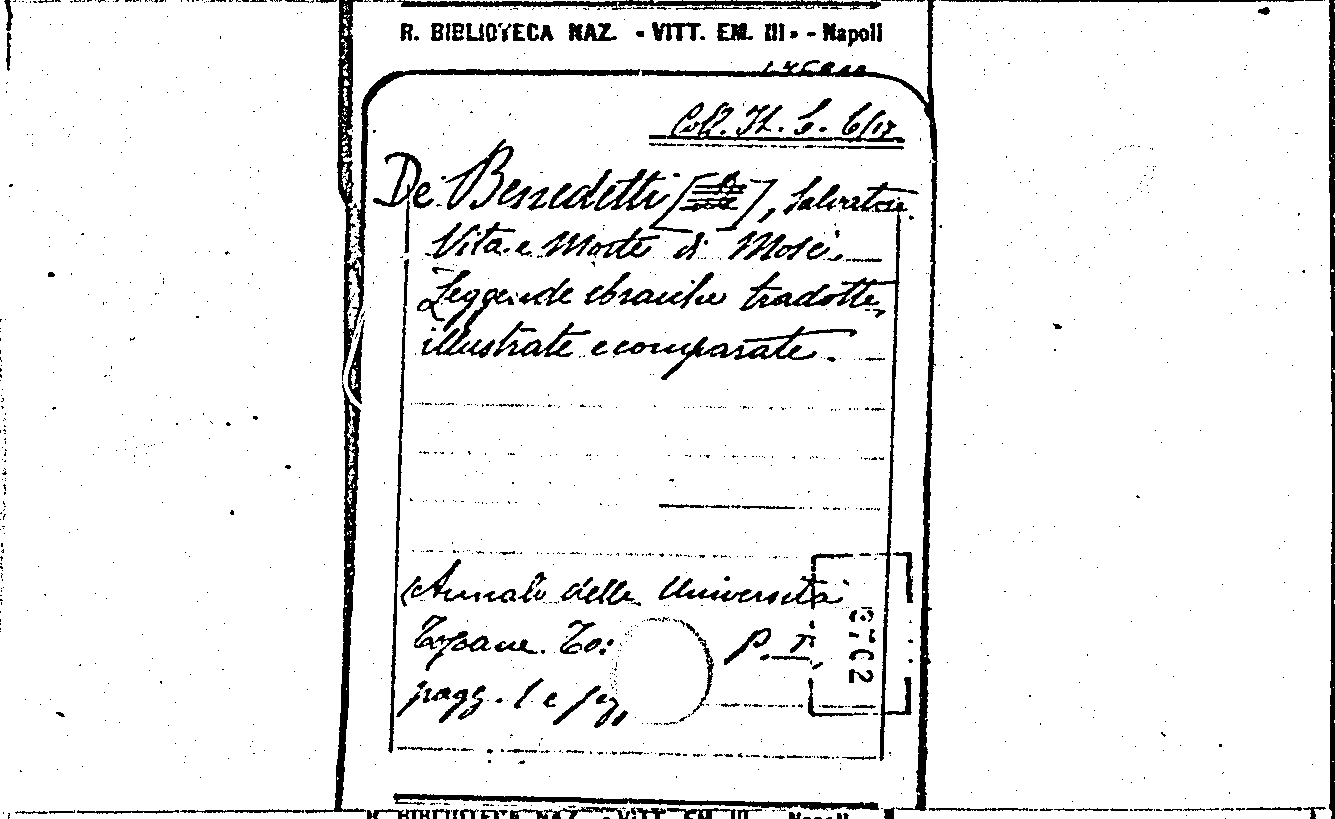 R. BIBLIOTECA NAZ. « VITT. EM. III » - Napoli
De Benedetti [ ], Salvatore.
Vita e Morte di Mosè.
Leggende ebraiche tradotte,
illustrate e comparate.
Annali delle Università
Toscane. To: P. I,
pagg. 1 e seg,
R. BIBLIOTECA NAZ. « VITT. EM. III » - Napoli